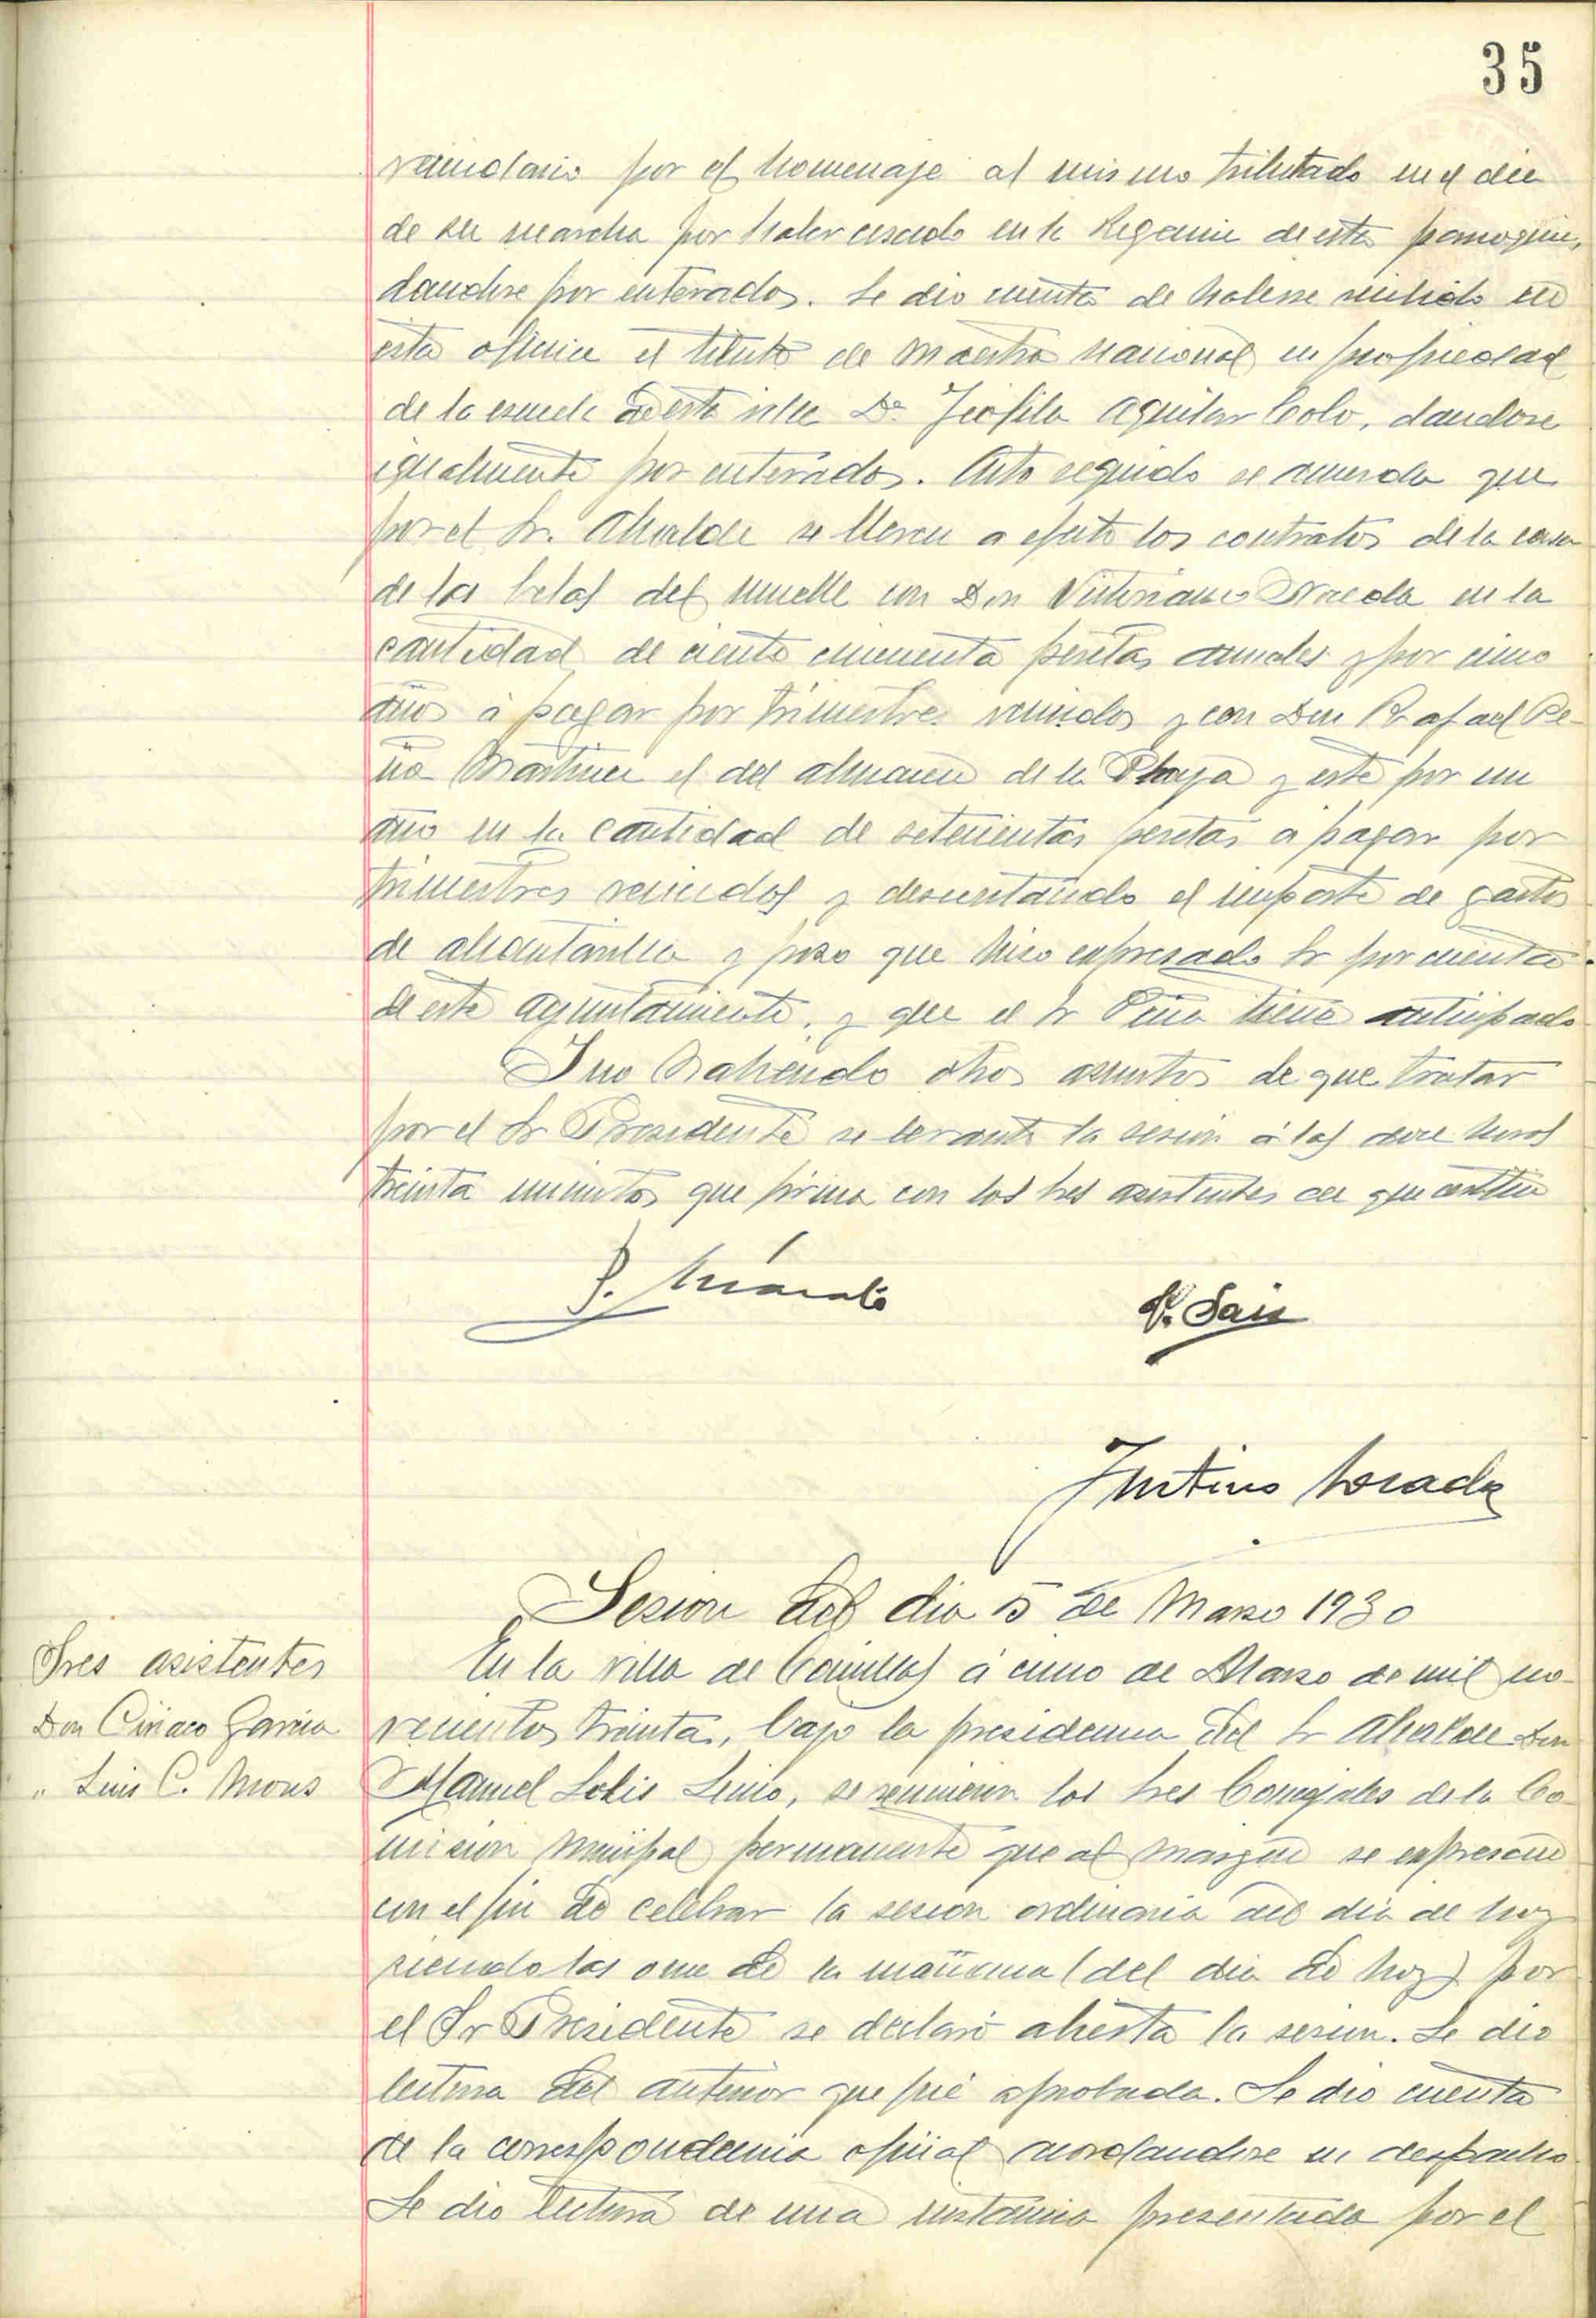 35
vecindario por el homenaje al mismo tributado en el dia
de su marcha por haber cesado en la Regencia de esta parroquia,
dandose por enterados. Se dio cuenta de haberse recibido en
esta oficina el titulo de Maestra Nacional en propiedad
de la escuela de esta villa Dª Teofila Aguilar Colo, dandose
igualmente por enterados. Acto seguido se acuerda que
por el Sr. Alcalde se lleven a efecto los contratos de la casa
de las belas del muelle con Don Victoriano en la
cantidad de ciento cincuenta pesetas anuales y por cinco
años á pagar por trimestres vencidos y con Don Rafael Pe-
ña Martinez el del almacen de la Playa y este por un
año en la cantidad de setecientas pesetas a pagar por
trimestres vencidos y descontando el importe de gastos
de alcantarilla y piso que hizo expresado Sr por cuenta
de este Ayuntamiento, y que el Sr Peña tiene anticipado
Y no habiendo otros asuntos de que tratar
por el Sr Presidente se levanta la sesion á las doce horas
treinta minutos que firma con los Sres asistentes de que certifico
V. Sais
Justino
Sesion del dia 5 de Marzo 1930
Sres asistentes
Don Ciriaco Garcia
" Luis C. Mons
En la villa de Comillas á cinco de Marzo de mil no-
vecientos treinta, bajo la presidencia del Sr Alcalde Don
Manuel Solis, se reunieron los Sres Concejales de la Co-
mision Municipal permanente que al margen se expresan
con el fin de celebrar la sesion ordinaria del dia de hoy
siendo las once de la mañana (del dia de hoy) por
el Sr Presidente se declaró abierta la sesion. Se dio
lectura del anterior que fué aprobada. Se dio cuenta
de la correspondencia oficial acordandose su despacho
Se dio lectura de una instancia presentada por el